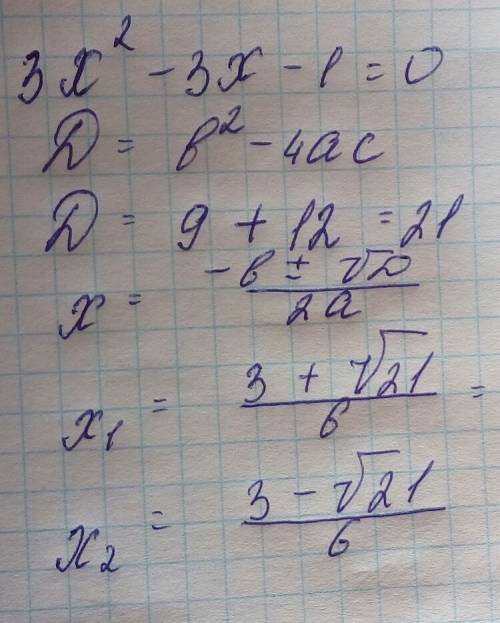 3x² - 3x - 1 = 0
D = b² - 4ac
D = 9 + 12 = 21
x = (-b ± √D)/(2a)
x₁ = (3 + √21)/6 =
x₂ = (3 - √21)/6